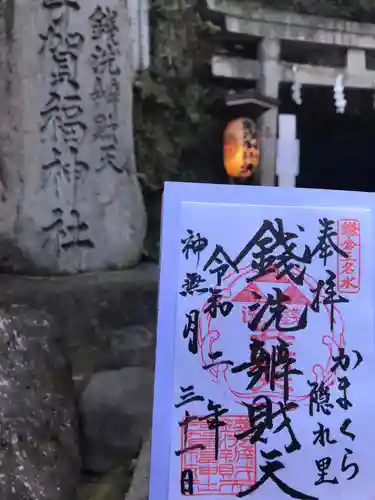 銭洗辯財天
宇賀福神社
鎌倉五名水
奉拝
かまくら隠れ里
銭洗辧財天
令和二年
神無月三十一日